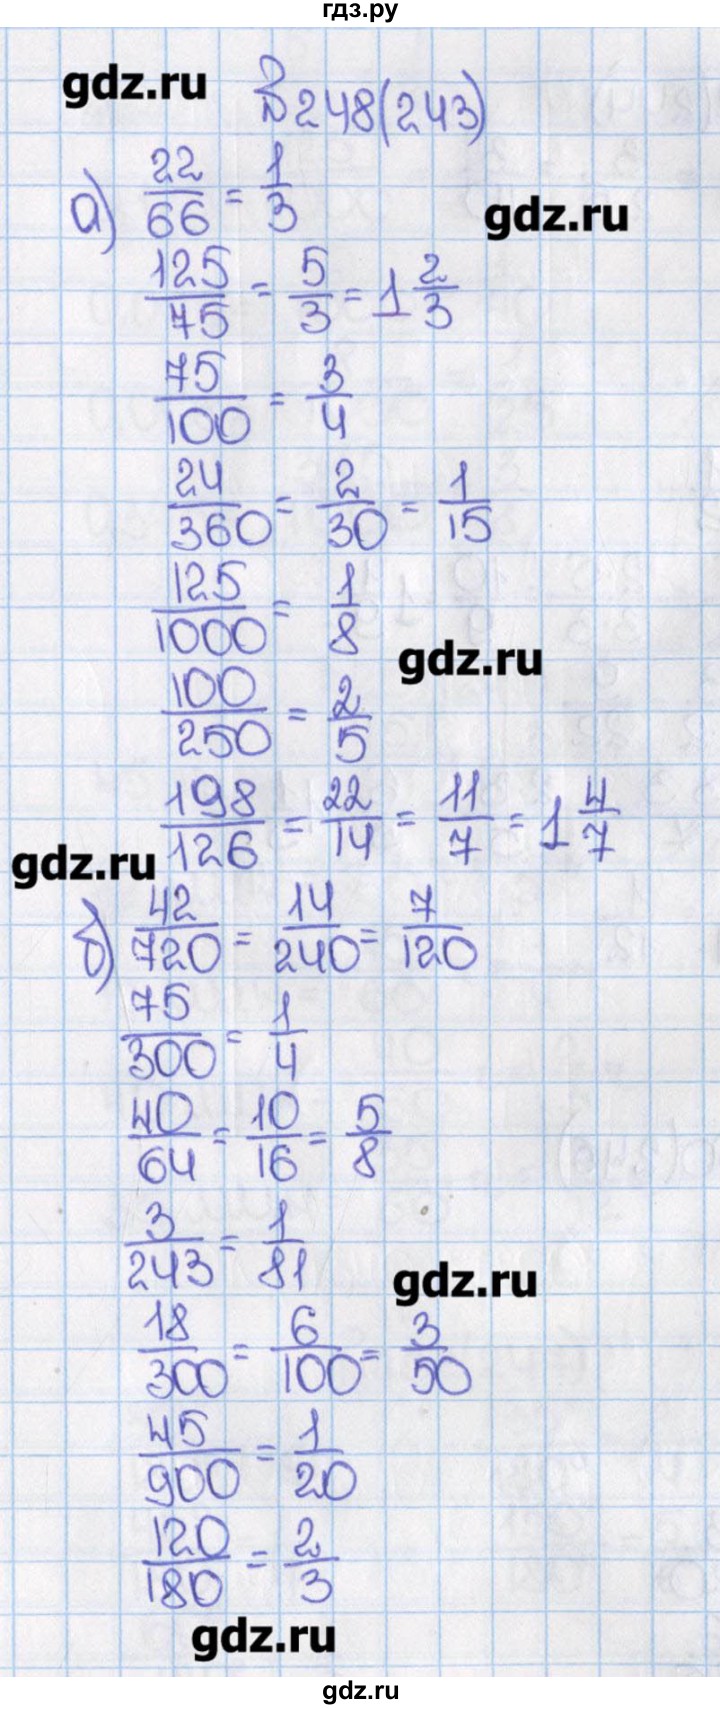 гдз.ру
gdz.ru
№248(243)
а) 22/66 = 1/3
gdz.ru
125/75 = 5/3 = 1 2/3
75/100 = 3/4
24/360 = 2/30 = 1/15
125/1000 = 1/8
gdz.ru
100/250 = 2/5
198/126 = 22/14 = 11/7 = 1 4/7
gdz.ru
б) 42/720 = 14/240 = 7/120
75/300 = 1/4
40/64 = 10/16 = 5/8
3/243 = 1/81
gdz.ru
18/300 = 6/100 = 3/50
45/900 = 1/20
120/180 = 2/3
gdz.ru
gdz.ru